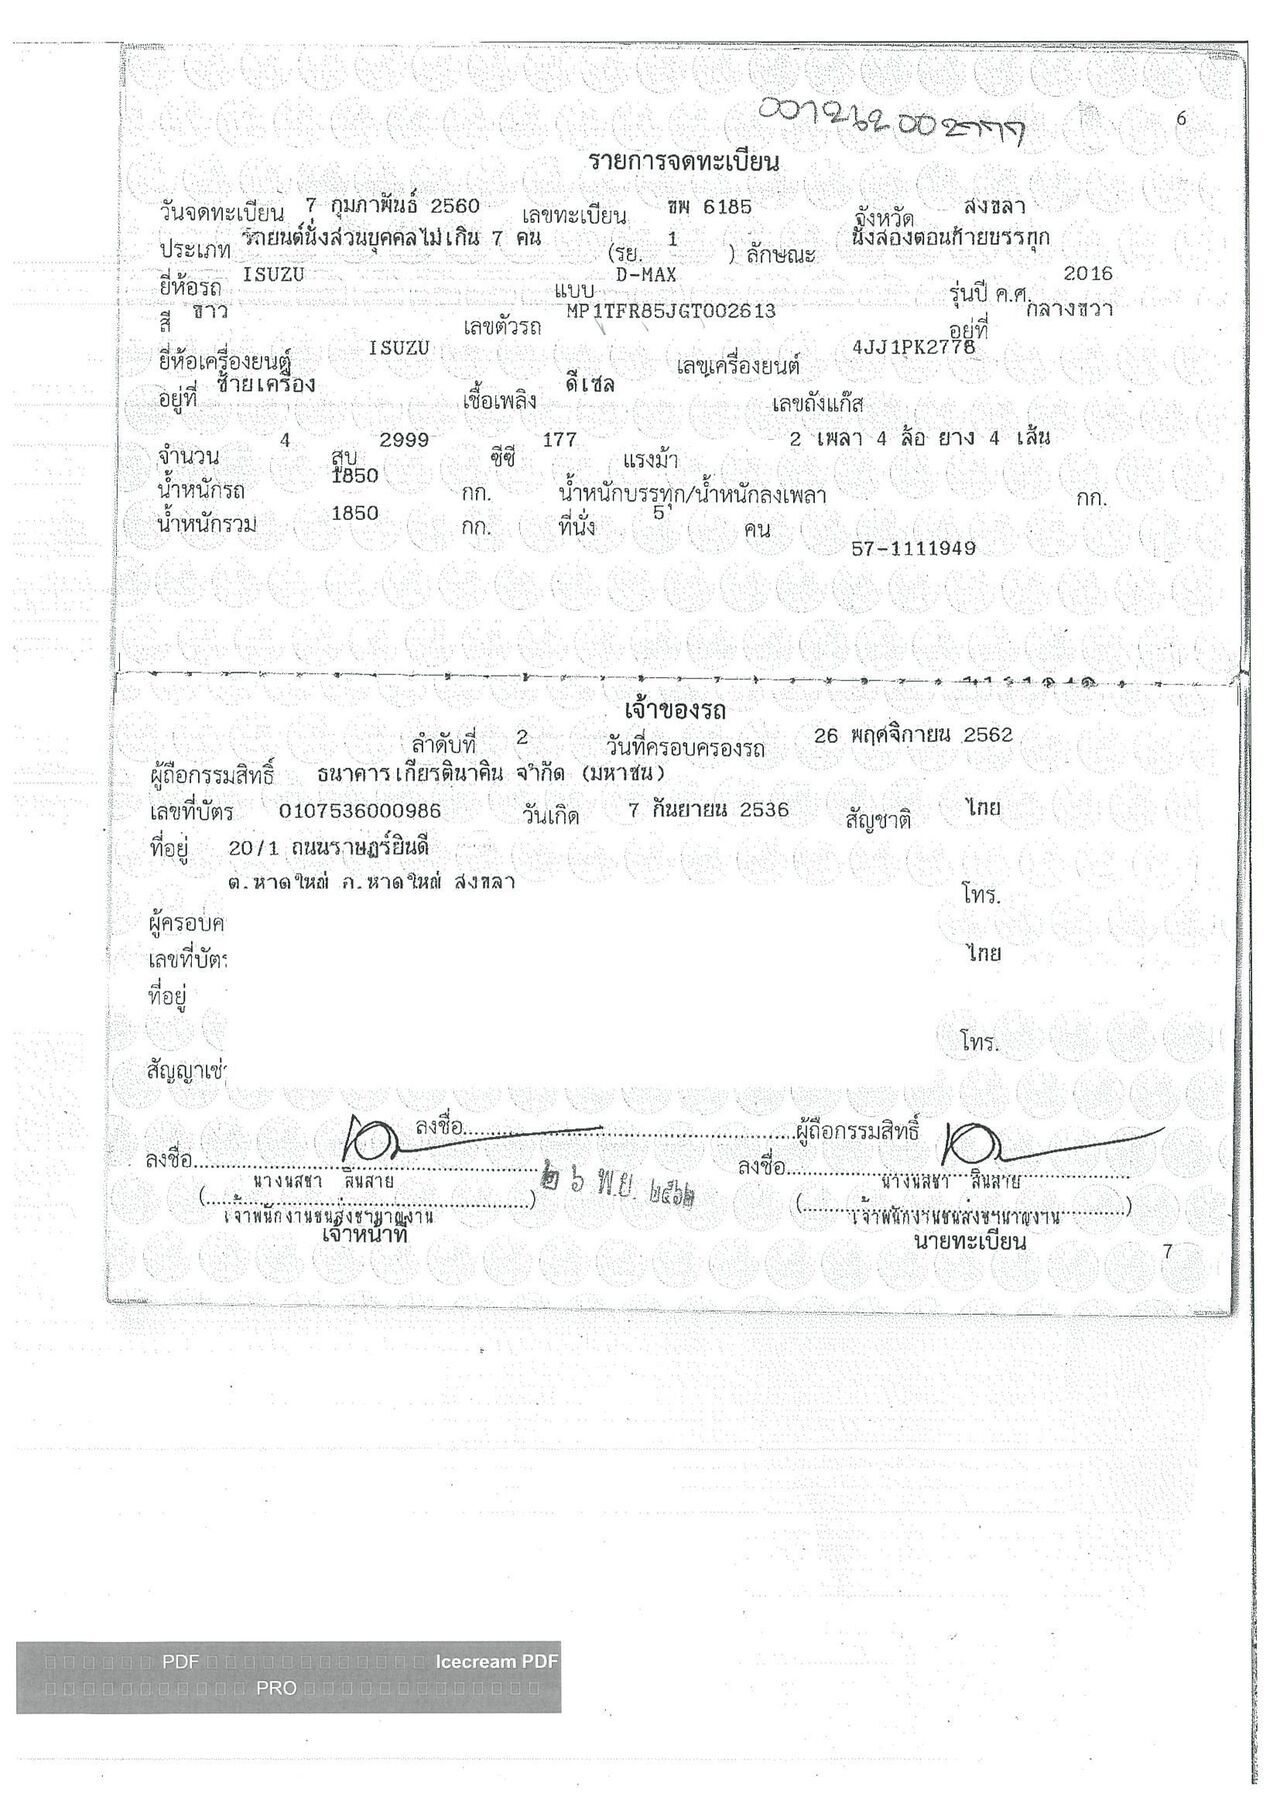 6
รายการจดทะเบียน
วันจดทะเบียน 7 กุมภาพันธ์ 2560 เลขทะเบียน ขพ 6185 จังหวัด สงขลา
ประเภท รถยนต์นั่งส่วนบุคคลไม่เกิน 7 คน (รย. 1 ) ลักษณะ นั่งสองตอนท้ายบรรทุก
ยี่ห้อรถ ISUZU แบบ D-MAX รุ่นปี ค.ศ. 2016
สี ขาว เลขตัวรถ MP1TFR85JGT002613 อยู่ที่ กลางขวา
ยี่ห้อเครื่องยนต์ ISUZU เลขเครื่องยนต์ 4JJ1PK2778
อยู่ที่ ซ้ายเครื่อง เชื้อเพลิง ดีเซล เลขถังแก๊ส
จำนวน 4 สูบ 2999 ซีซี 177 แรงม้า 2 เพลา 4 ล้อ ยาง 4 เส้น
น้ำหนักรถ 1850 กก. น้ำหนักบรรทุก/น้ำหนักลงเพลา กก.
น้ำหนักรวม 1850 กก. ที่นั่ง 5 คน
57-1111949
เจ้าของรถ
ลำดับที่ 2 วันที่ครอบครองรถ 26 พฤศจิกายน 2562
ผู้ถือกรรมสิทธิ์ ธนาคารเกียรตินาคิน จำกัด (มหาชน)
เลขที่บัตร 0107536000986 วันเกิด 7 กันยายน 2536 สัญชาติ ไทย
ที่อยู่ 20/1 ถนนราษฎร์ยินดี
ต.หาดใหญ่ อ.หาดใหญ่ สงขลา โทร.
ผู้ครอบค
เลขที่บัตร ไทย
ที่อยู่
โทร.
สัญญาเช่า
ลงชื่อ..........ผู้ถือกรรมสิทธิ์
ลงชื่อ.......... ลงชื่อ..........
(นางนสชา สินสาย) ๒๖ พ.ย. ๒๕๖๒ (นางนสชา สินสาย)
เจ้าพนักงานขนส่งชำนาญงาน เจ้าพนักงานขนส่งชำนาญงาน
เจ้าหน้าที่ นายทะเบียน
7
PDF Icecream PDF
PRO